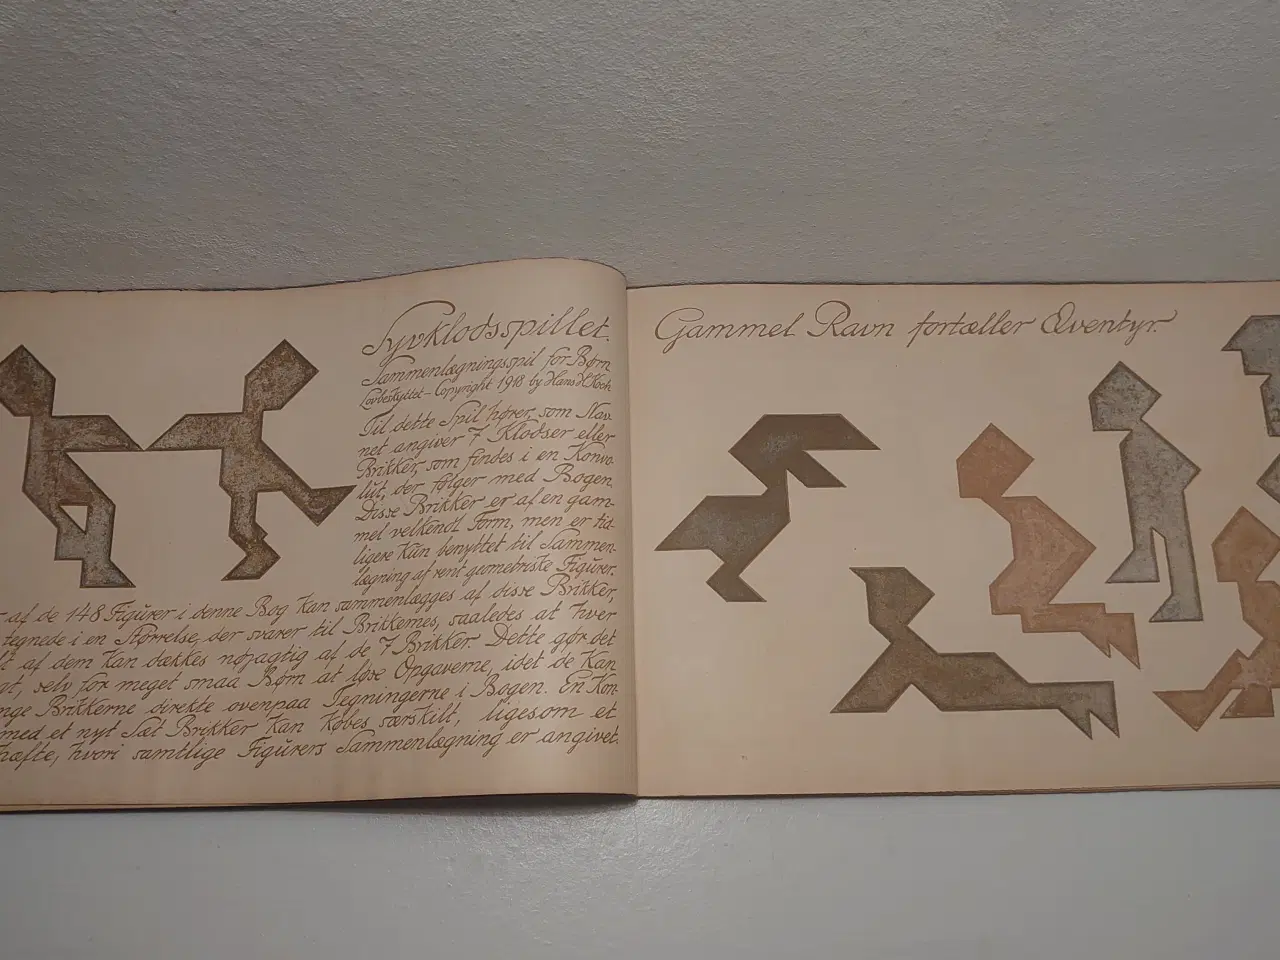 Syvklodsspillet.
Sammenlægningsspil for Børn
Lovbeskyttet – Copyright 1918 by Hans H. Koch
Til dette Spil hører, som Nav-
net angiver 7 Klodser eller
Brikker, som findes i en Konvo-
lut, der følger med Bogen.
Disse Brikker er af en gam-
mel velkendt Form, men er tid-
ligere kun benyttet til Sammen-
lægning af rent geometriske Figurer.
af de 148 Figurer i denne Bog kan sammenlægges af disse Brikker,
tegnede i en Størrelse, der svarer til Brikkernes, saaledes at hver
af dem kan dækkes nøjagtig af de 7 Brikker. Dette gør det
selv for meget smaa Børn at løse Opgaverne, idet de kan
Brikkerne direkte ovenpaa Tegningerne i Bogen. En Kon-
med et nyt Sæt Brikker kan købes særskilt, ligesom et
hæfte, hvori samtlige Figurers Sammenlægning er angivet.
Gammel Ravn fortæller Æventyr.